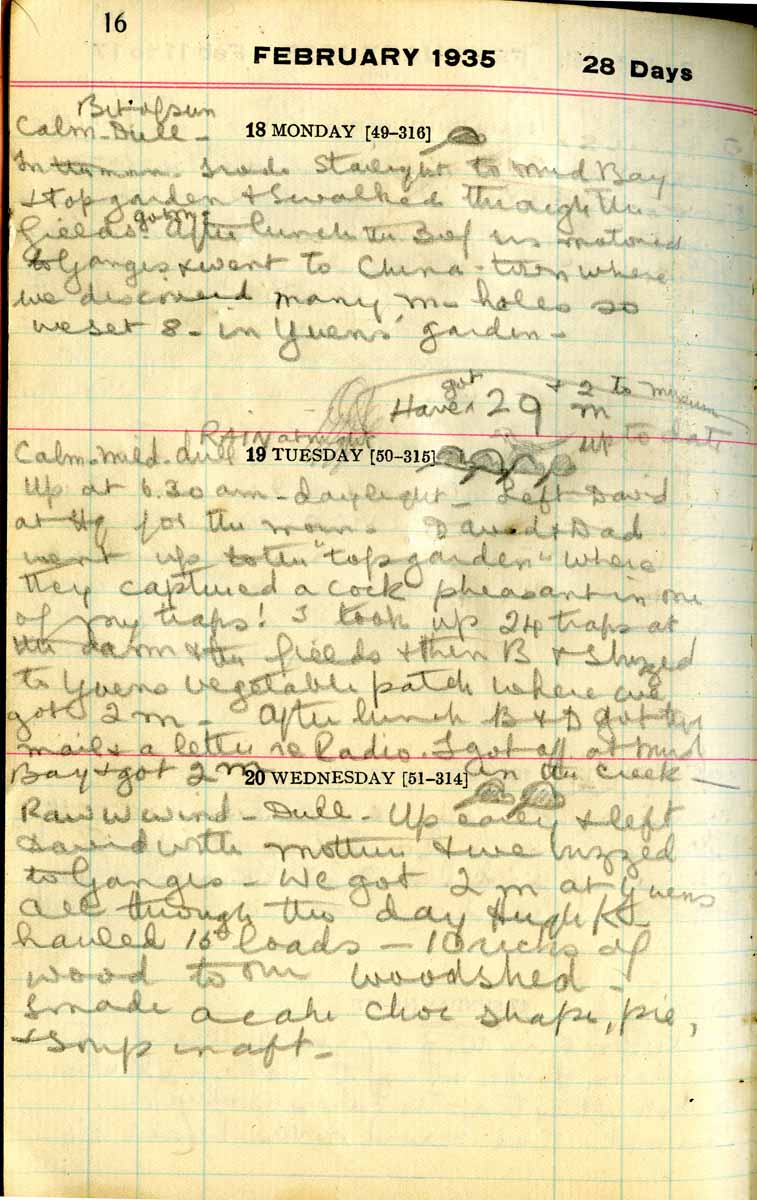 16
FEBRUARY 1935
28 Days
Bit of sun
Calm - Dull -
18 MONDAY [49-316]
In I rode Starlight to Mud Bay
& top garden & I walked through the
fields. got m After lunch the 3 of us motored
to Ganges & went to China-town where
we discovered many m - holes so
we set 8 - in Yuens' garden -
Have got 29 m + 2 to museum
up to date
RAIN at night
Calm - mild - dull
19 TUESDAY [50-315]
Up at 6.30 am - daylight - Left David
at Hq for the morn - David & Dad
went up to the "top garden" where
they captured a cock pheasant in one
of my traps! I took up 24 traps at
the farm & the fields & then B & I buzzed
to Yuens vegetable patch where we
got 2 m - After lunch B & D got the
mail & a letter re Radio. I got off at Mud
Bay & got 2 m in the creek -
20 WEDNESDAY [51-314]
Raw W wind - Dull - Up early & left
David with mother & we buzzed
to Ganges - We got 2 m at Yuens
All through the day Hugh K
hauled 16 loads - 10 ricks of
wood to our woodshed -
I made a cake choc shape, pie,
& soup in aft -